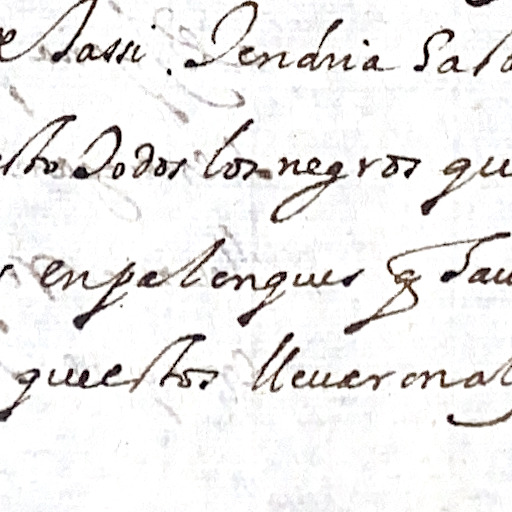 assi. Tendria Sala
todos los negros qu
en palenques q
questos lleuaron al